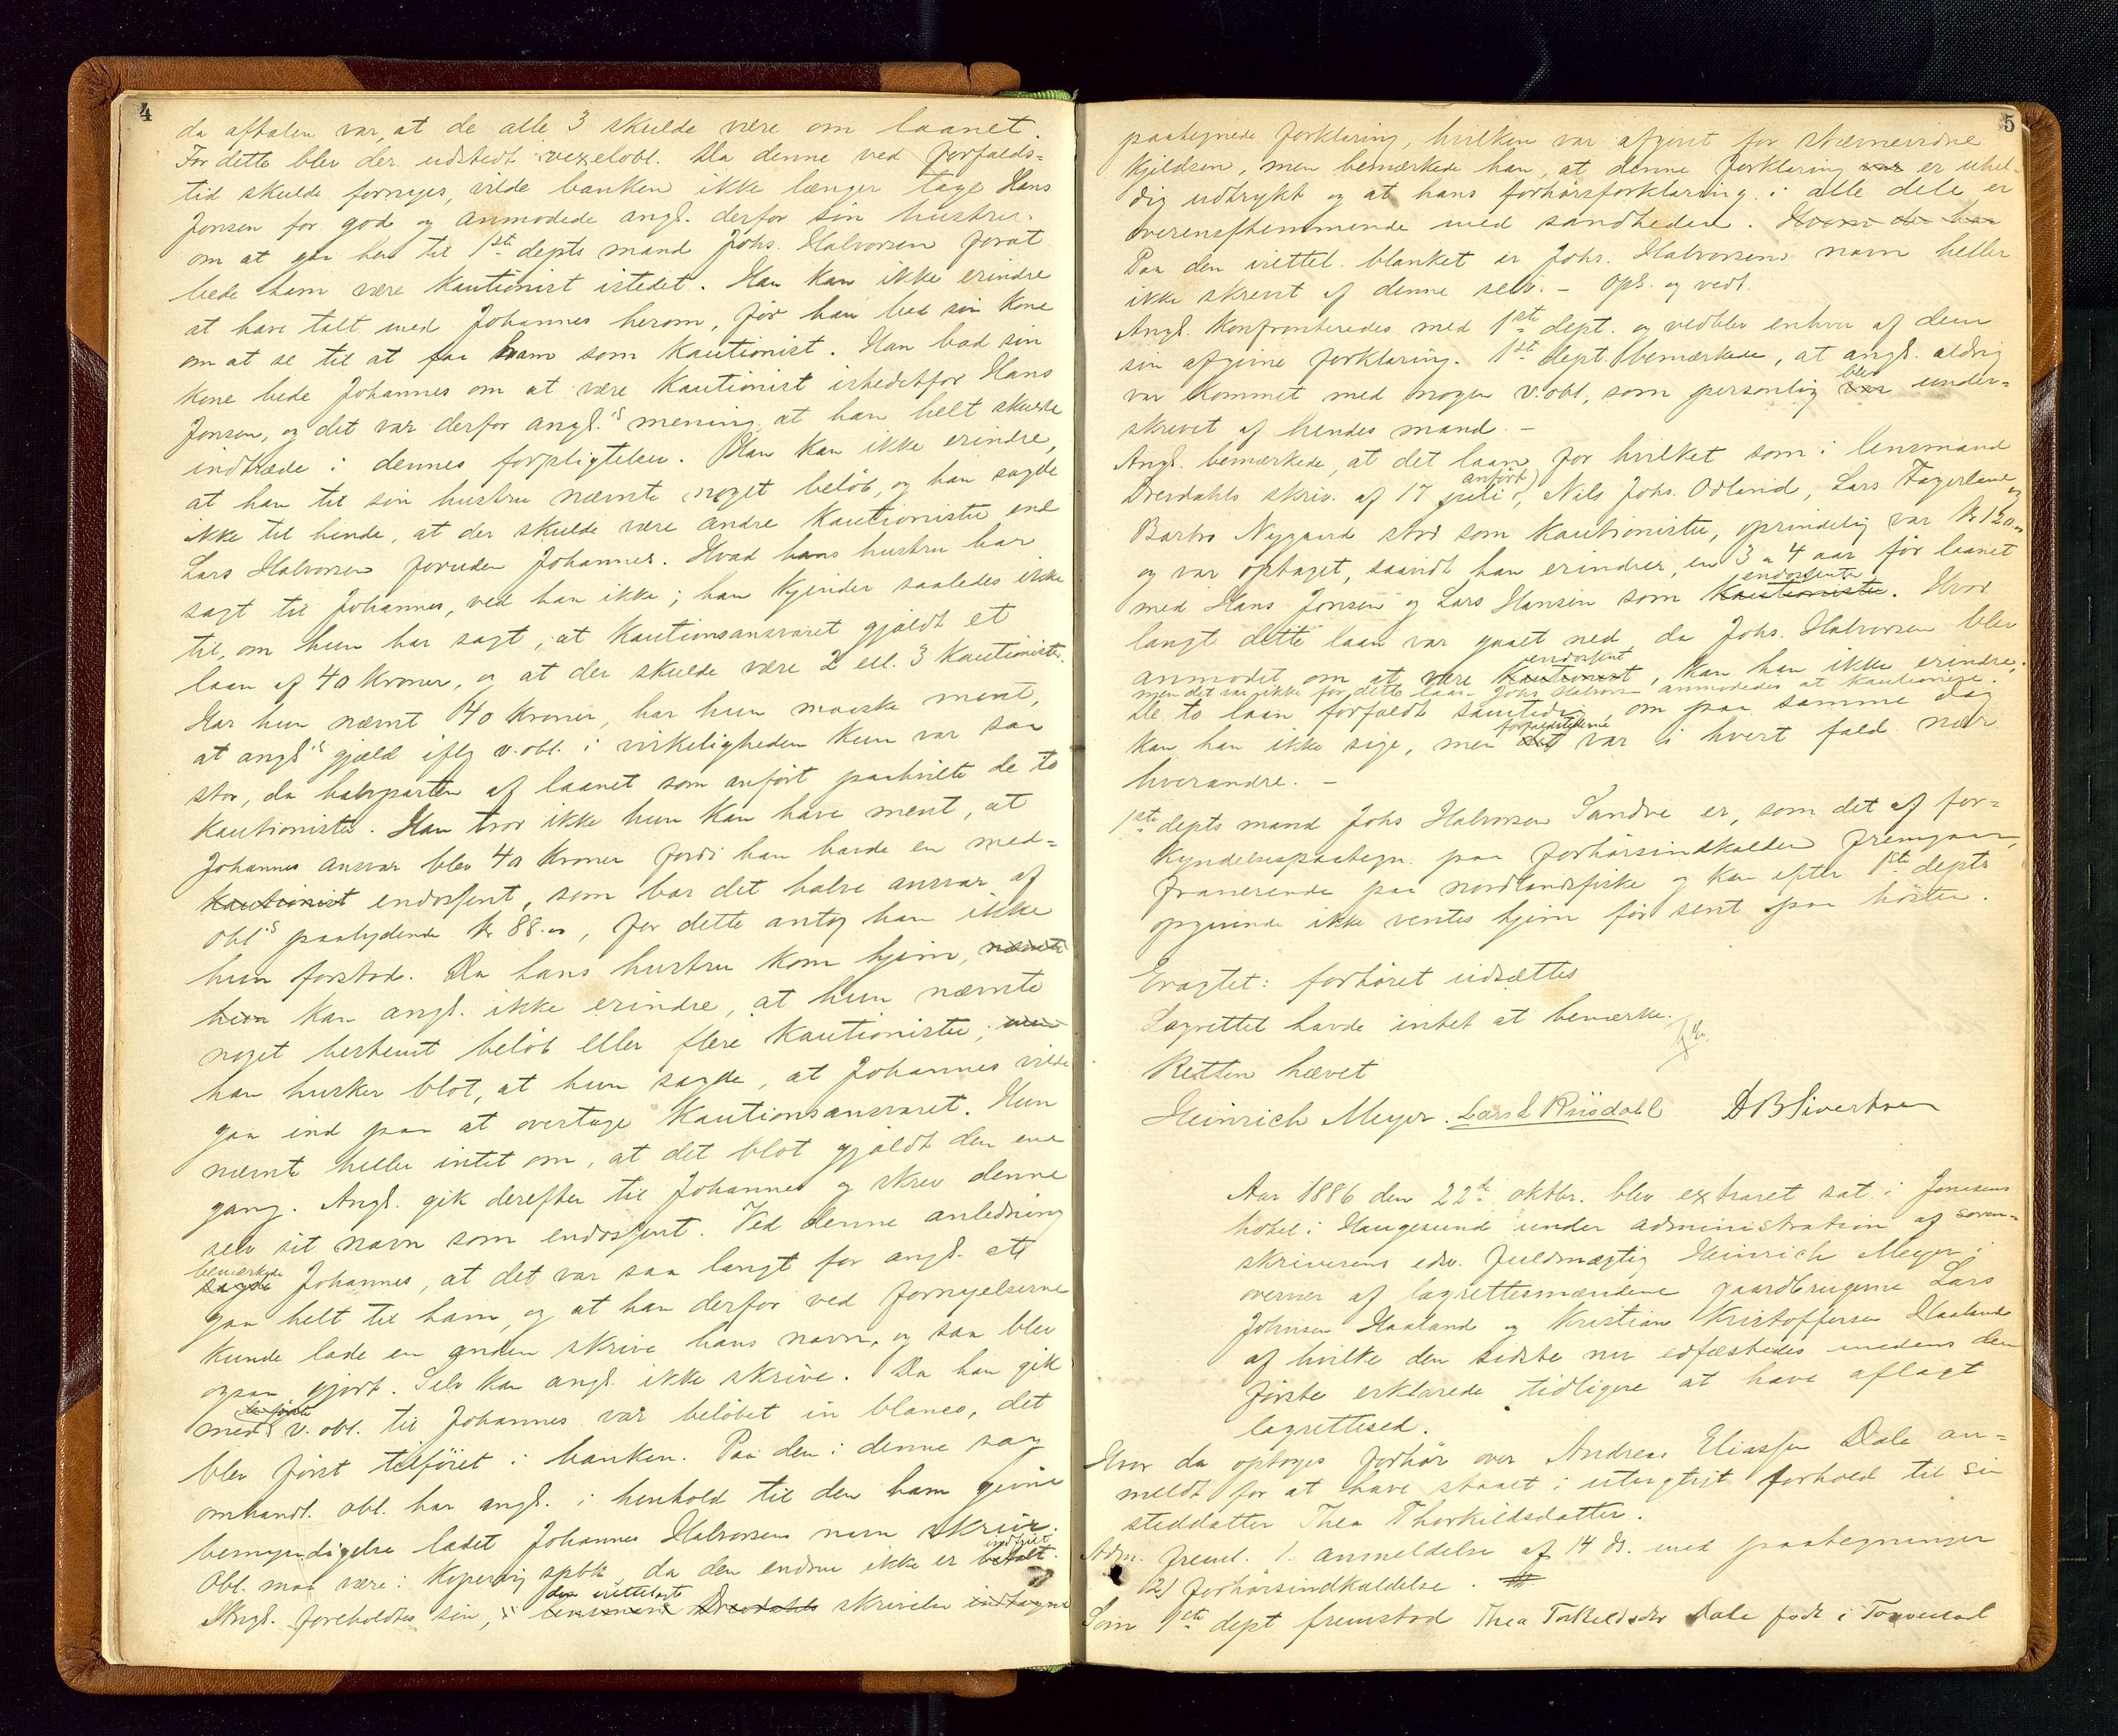 4
da aftalen var, at de alle 3 skulde være om laanet.
For dette blev der udstedt vexelobl. Da denne ved forfalds=
tid skulde fornyes, vilde banken ikke længer tage Hans
Jonsen for god og anmodede angl. derfor sin hustru
om at gaa hen til 1ste depts mand Johs. Halvorsen forat
bede ham være kautionist istedet. Han kan ikke erindre
at have talt med Johannes herom, før han bad sin kone
om at se til at faa ham som kautionist. Han bad sin
kone bede Johannes om at være kautionist istedetfor Hans
Jonsen, og det var derfor angl.'s mening at han helt skulde
indtræde i dennes forpligtelser. Han kan ikke erindre,
at han til sin hustru nævnte noget beløb, og han sagde
ikke til hende, at der skulde være andre kautionister end
Lars Halvorsen foruden Johannes. Hvad hans hustru har
sagt til Johannes, ved han ikke; han kjender saaledes ikke
til, om hun har sagt, at kautionsansvaret gjaldt et
laan af 40 kroner, og at der skulde være 2 ell. 3 kautionister.
Har hun nævnt 40 kroner, har hun maaske ment,
at angl's gjæld iflg v.obl. i virkeligheden kun var saa
stor, da halvparten af laanet som anført paahvilte de to
kautionister. Han tror ikke hun kan have ment, at
Johannes ansvar blev 40 kroner fordi han havde en med=
kautionist endossent, som bar det halve ansvar af
obl's paalydende kr 88.00, for dette antog han ikke
hun forstod. Da hans hustru kom hjem, nævnte
hun kan angl. ikke erindre, at hun nævnte
noget bestemt beløb eller flere kautionister; men
han husker blot, at hun sagde, at Johannes vilde
gaa ind paa at overtage kautionsansvaret. Hun
nævnte heller intet om, at det blot gjaldt den ene
gang. Angl. gik derefter til Johannes og skrev denne
selv sit navn som endossent. Ved denne anledning
bemærkede
sagde Johannes, at det var saa langt for angl. at
gaa helt til ham, og at han derfor ved fornyelserne
kunde lade en anden skrive hans navn, og saa blev
ogsaa gjort. Selv kan angl. ikke skrive. Da han gik
med v. obl. til Johannes var beløbet in blanco, det
blev først tilføiet i banken. Paa den i denne sag
omhandl. obl. har angl. i henhold til den ham givne
bemyndigelse ladet Johannes Halvorsens navn skrive.
indfriet
Obl. maa være i Kopervig spbk, da den endnu ikke er betalt.
den irettelagte
Angl. foreholdtes sin, i lensmand Drevdahls skrivelse indtagne
5
paategnede forklaring, hvilken var afgivet for stævnevidne
Kjeldsen, men bemærkede han, at denne forklaring var er uhel=
dig udtrykt og at hans forhørsforklaring i alle dele er
overensstemmende med sandheden. Hvem der har
Paa den irettel. blanket er Johs. Halvorsens navn heller
ikke skrevet af denne selv. – Opl. og vedt.
Angl. konfronteredes med 1ste dept. og vedblev enhver af dem
sin afgivne forklaring. 1ste dept. bemærkede, at angl. aldrig
blev
var kommet med nogen v.obl., som personlig var under=
skrevet af hendes mand. –
Angl. bemærkede, at det laan for hvilket som i lensmand
anført
Drevdahls skriv. af 17 juli, Nils Johs. Odland, Lars Fagerland og
Barbro Nygaard stod som kautionister, oprindelig var kr 120.00
og var optaget, saavidt han erindrer, en 3 a 4 aar før laanet
endossenter
med Hans Jonsen og Lars Hansen som kautionister. Hvor
langt dette laan var gaaet ned da Johs. Halvorsen blev
endossent
anmodet om at være kautionist, kan han ikke erindre;
men det var ikke for dette laan Johs Halvorsen anmodedes at kautionere.
De to laan forfaldt samtidig, om paa samme dag
forfaldstiderne
kan han ikke sige, men det var i hvert fald nær
hverandre. –
1ste depts mand Johs Halvorsen Sandve er, som det af for=
kyndelsespaategn. paa forhørsindkaldelsen fremgaar,
fraværende paa nordlandsfiske og kan efter 1ste depts
opgivende ikke ventes hjem før sent paa høsten.
Eragtet: forhøret udsættes
Lagrettet havde intet at bemærke.
Retten hævet
Heinrich Meyer. Lars L Riisdahl DBSivertsen
Aar 1886 den 22de oktbr. blev extraret sat i Jonesens
hotel i Haugesund under administration af soren=
skriverens edsv. fuldmægtig Heinrich Meyer i
overvær af lagrettesmændene gaardbrugerne Lars
Johnsen Haaland og Kristian Kristoffersen Haaland
af hvilke den sidste nu edfæstedes medens den
første erklærede tidligere at have aflagt
lagrettesed.
Hvor da optoges forhør over Andreas Eliassen Dale an=
meldt for at have staaet i utugtigt forhold til sin
steddatter Thea Thorkildsdatter.
Adm. freml. 1. anmeldelse af 14 ds. med paategninger
2) forhørsindkaldelse.
Som 1ste dept fremstod Thea Torkeldsdtr Dale født i Torvestad